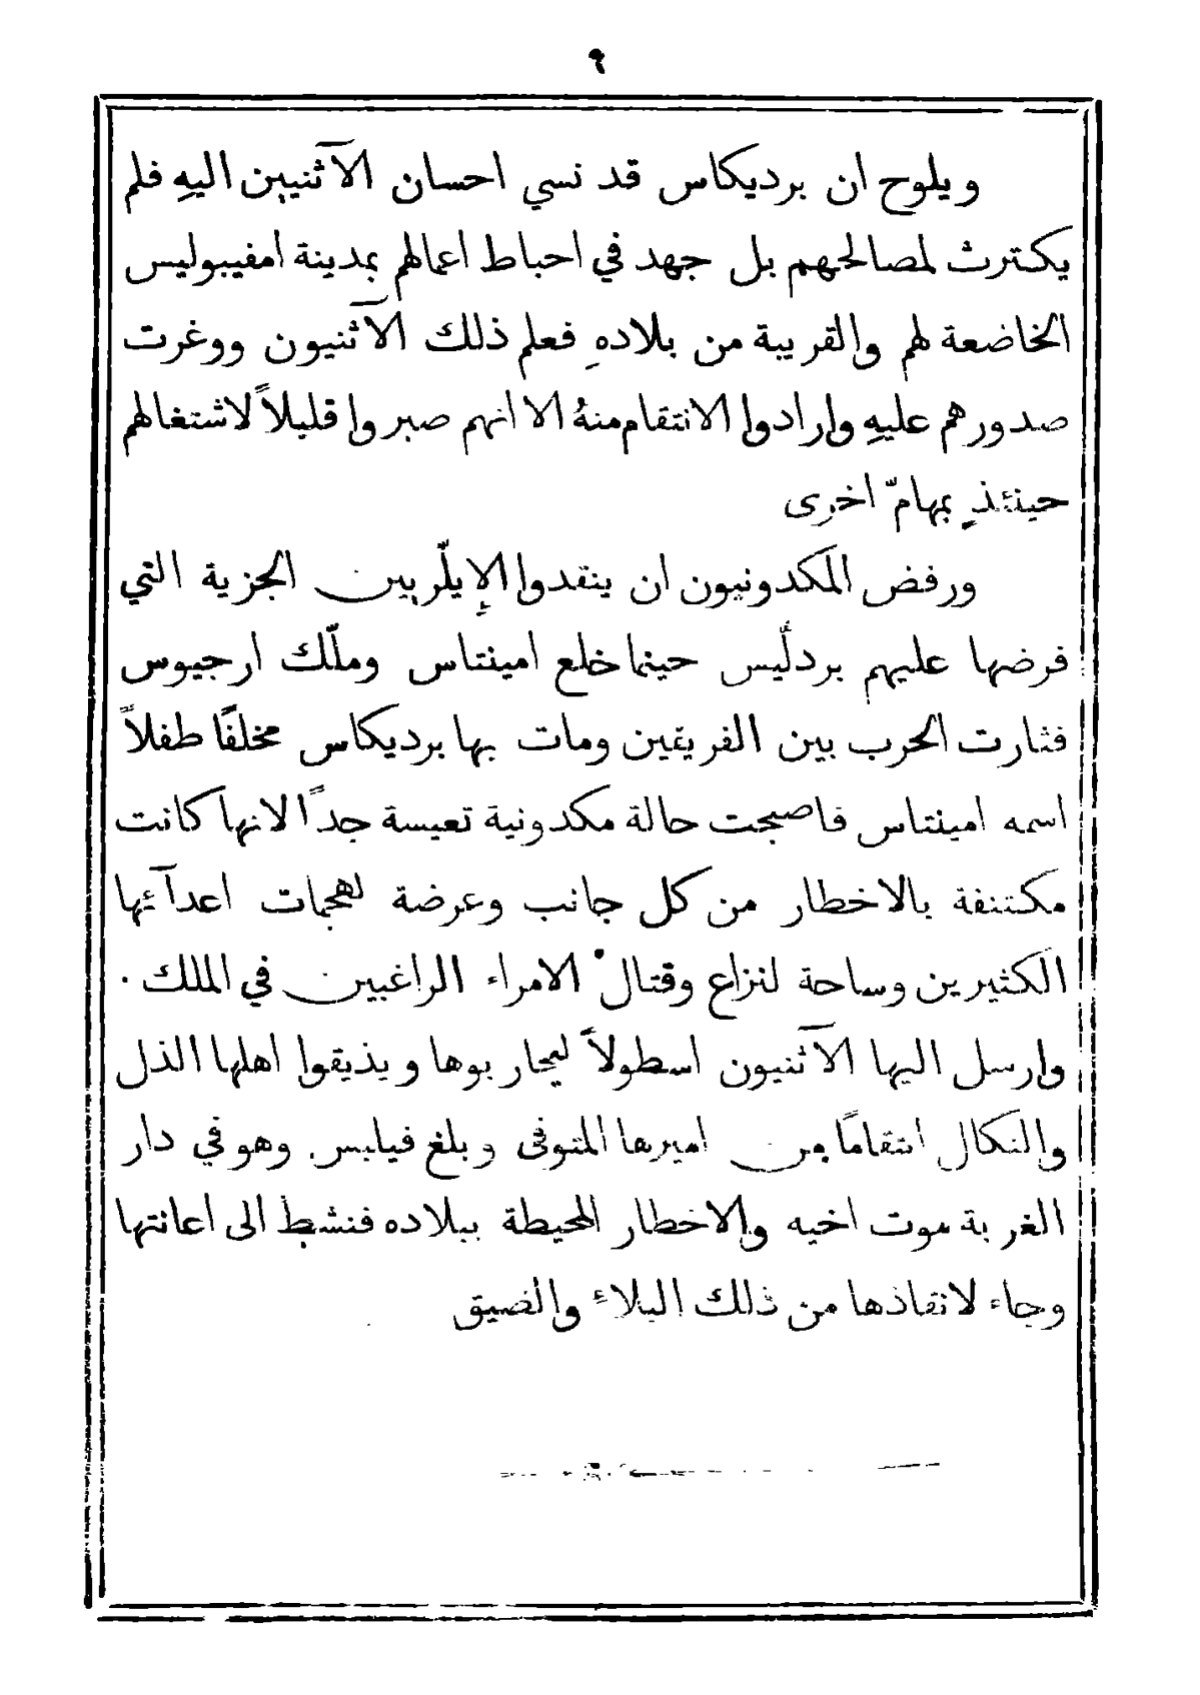 ٩
ويلوح ان برديكاس قد نسي احسان الآثنيين اليهِ فلم
يكترث لمصالحهم بل جهد في احباط اعمالهم بمدينة امفيبوليس
الخاضعة لهم والقريبة من بلادهِ فعلم ذلك الآثنيون ووغرت
صدورهم عليهِ وارادوا الانتقام منهُ الا انهم صبروا قليلاً لاشتغالهم
حينئذٍ بمهامّ اخرى
ورفض المكدونيون ان ينقدوا الإيلّريين الجزية التي
فرضها عليهم بردلّيس حينما خلع امينتاس وملّك ارجيوس
فثارت الحرب بين الفريقين ومات بها برديكاس مخلفًا طفلاً
اسمه امينتاس فاصبحت حالة مكدونية تعيسة جدًا لانها كانت
مكتنفة بالاخطار من كل جانب وعرضة لهجمات اعدآئها
الكثيرين وساحة لنزاع وقتال الامراء الراغبين في الملك .
وارسل اليها الآثنيون اسطولاً ليحاربوها ويذيقوا اهلها الذل
والنكال انتقامًا من اميرها المتوفى وبلغ فيلبس وهو في دار
الغربة موت اخيه والاخطار المحيطة ببلاده فنشط الى اعانتها
وجاء لانقاذها من ذلك البلاءِ والضيق